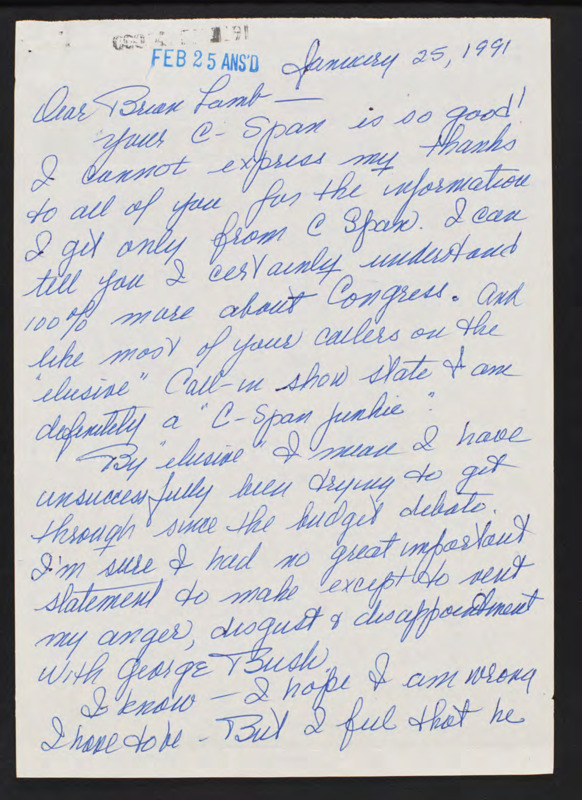 FEB 25 ANS'D
January 25, 1991
Dear Brian Lamb —
Your C-Span is so good!
I cannot express my thanks
to all of you for the information
I get only from C Span. I can
tell you I certainly understand
100% more about Congress. And
like most of your callers on the
"elusive" Call-in show state I am
definitely a "C-Span junkie".
By "elusive" I mean I have
unsuccessfully been trying to get
through since the budget debate.
I'm sure I had no great important
statement to make except to vent
my anger, disgust & disappointment
with George Bush.
I know — I hope I am wrong
I have to be - But I feel that he